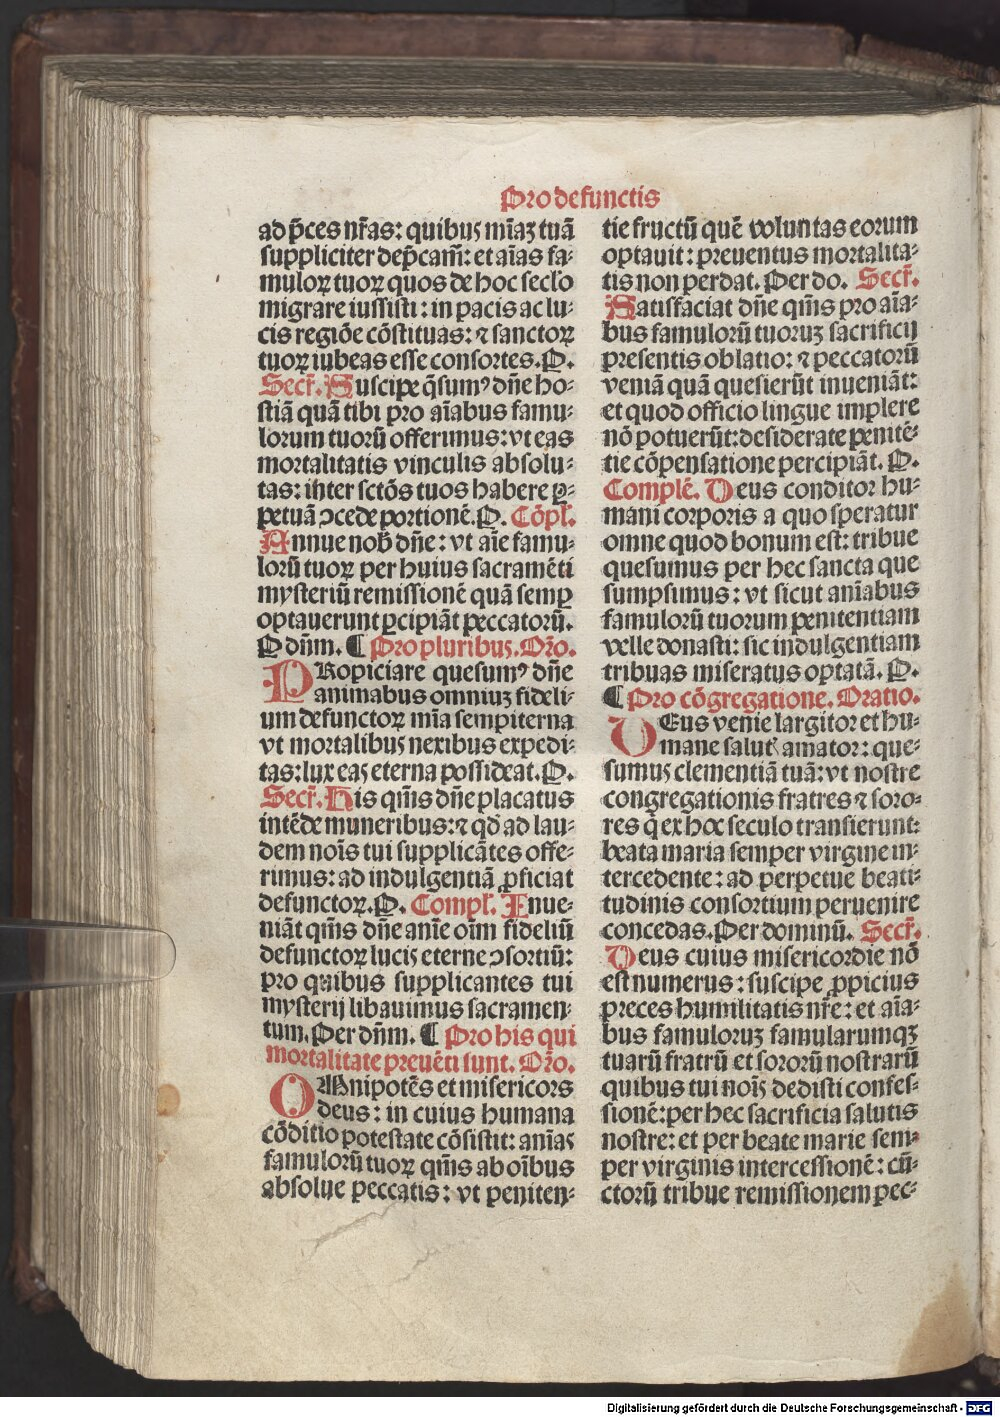 Pro defunctis
ad p̄ces nr̄as: quibus mīaꝫ tuā
suppliciter dep̄cam̄: et aīas fa⸗
muloꝝ tuoꝝ quos de hoc seclo
migrare iussisti: in pacis ac lu⸗
cis regiōe cōstituas: ⁊ sanctoꝝ
tuoꝝ iubeas esse consortes. P.
Secr̄. Suscipe q̄sumꝰ dn̄e ho⸗
stiā quā tibi pro aīabus famu⸗
lorum tuorū offerimus: vt eas
mortalitatis vinculis absolu⸗
tas: inter sctōs tuos habere ꝑ⸗
petuā ꝯcede portionē. P. Cōpl.
Annue nob̄ dn̄e: vt aīe famu⸗
lorū tuoꝝ per huius sacramēti
mysteriū remissionē quā semꝑ
optauerunt ꝑcipiāt peccatorū.
P dn̄m. ¶ Pro pluribus. Or̄o.
PRopiciare quesumꝰ dn̄e
animabus omniuꝫ fideli⸗
um defunctoꝝ mīa sempiterna
vt mortalibus nexibus expedi⸗
tas: lux eas eterna possideat. P.
Secr̄. His qm̄s dn̄e placatus
intēde muneribus: ⁊ qd̄ ad lau⸗
dem noīs tui supplicātes offe⸗
rimus: ad indulgentiā ꝓficiat
defunctoꝝ. P. Compl. Inue⸗
niāt qm̄s dn̄e anīe oīm fideliū
defunctoꝝ lucis eterne ꝯsortiū:
pro quibus supplicantes tui
mysterij libauimus sacramen⸗
tum. Per dn̄m. ¶ Pro his qui
mortalitate preuēti sunt. Or̄o.
OMnipotēs et misericors
deus: in cuius humana
cōditio potestate cōsistit: anīas
famulorū tuoꝝ qm̄s ab oībus
absolue peccatis: vt peniten⸗
tie fructū quē voluntas eorum
optauit: preuentus mortalita⸗
tis non perdat. Per do. Secr̄.
Satisfaciat dn̄e qm̄s pro aīa⸗
bus famulorū tuoruꝫ sacrificij
presentis oblatio: ⁊ peccatorū
veniā quā quesierūt inueniāt:
et quod officio lingue implere
nō potuerūt: desiderate penitē⸗
tie cōpensatione percipiāt. P.
Complē. Deus conditor hu⸗
mani corporis a quo speratur
omne quod bonum est: tribue
quesumus per hec sancta que
sumpsimus: vt sicut anīabus
famulorū tuorum penitentiam
velle donasti: sic indulgentiam
tribuas miseratus optatā. P.
¶ Pro cōgregatione. Oratio.
DEus venie largitor et hu⸗
mane salutꝭ amator: que⸗
sumus clementiā tuā: vt nostre
congregationis fratres ⁊ soro⸗
res q̄ ex hoc seculo transierunt:
beata maria semper virgine in⸗
tercedente: ad perpetue beati⸗
tudinis consortium peruenire
concedas. Per dominū. Secr̄.
Deus cuius misericordie nō
est numerus: suscipe ꝓpicius
preces humilitatis nr̄e: et aīa⸗
bus famuloruꝫ famularumqꝫ
tuarū fratrū et sororū nostrarū
quibus tui noīs dedisti confes⸗
sionē: per hec sacrificia salutis
nostre: et per beate marie sem⸗
per virginis intercessionē: cū⸗
ctorū tribue remissionem pec⸗
Digitalisierung gefördert durch die Deutsche Forschungsgemeinschaft - DFG